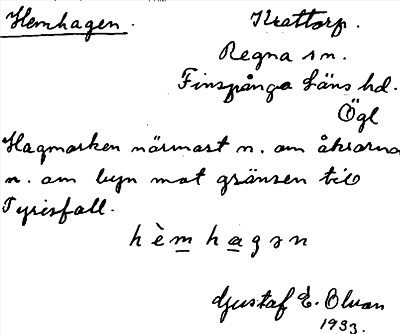 Hemhagen. Krattorp.
Regna sn.
Finspånga läns hd.
Ögl
Hagmarken närmast n. om åkrarna
n. om byn mot gränsen till
Tyrisfall.
hèmhagən
Gustaf E. Olvan
1933.